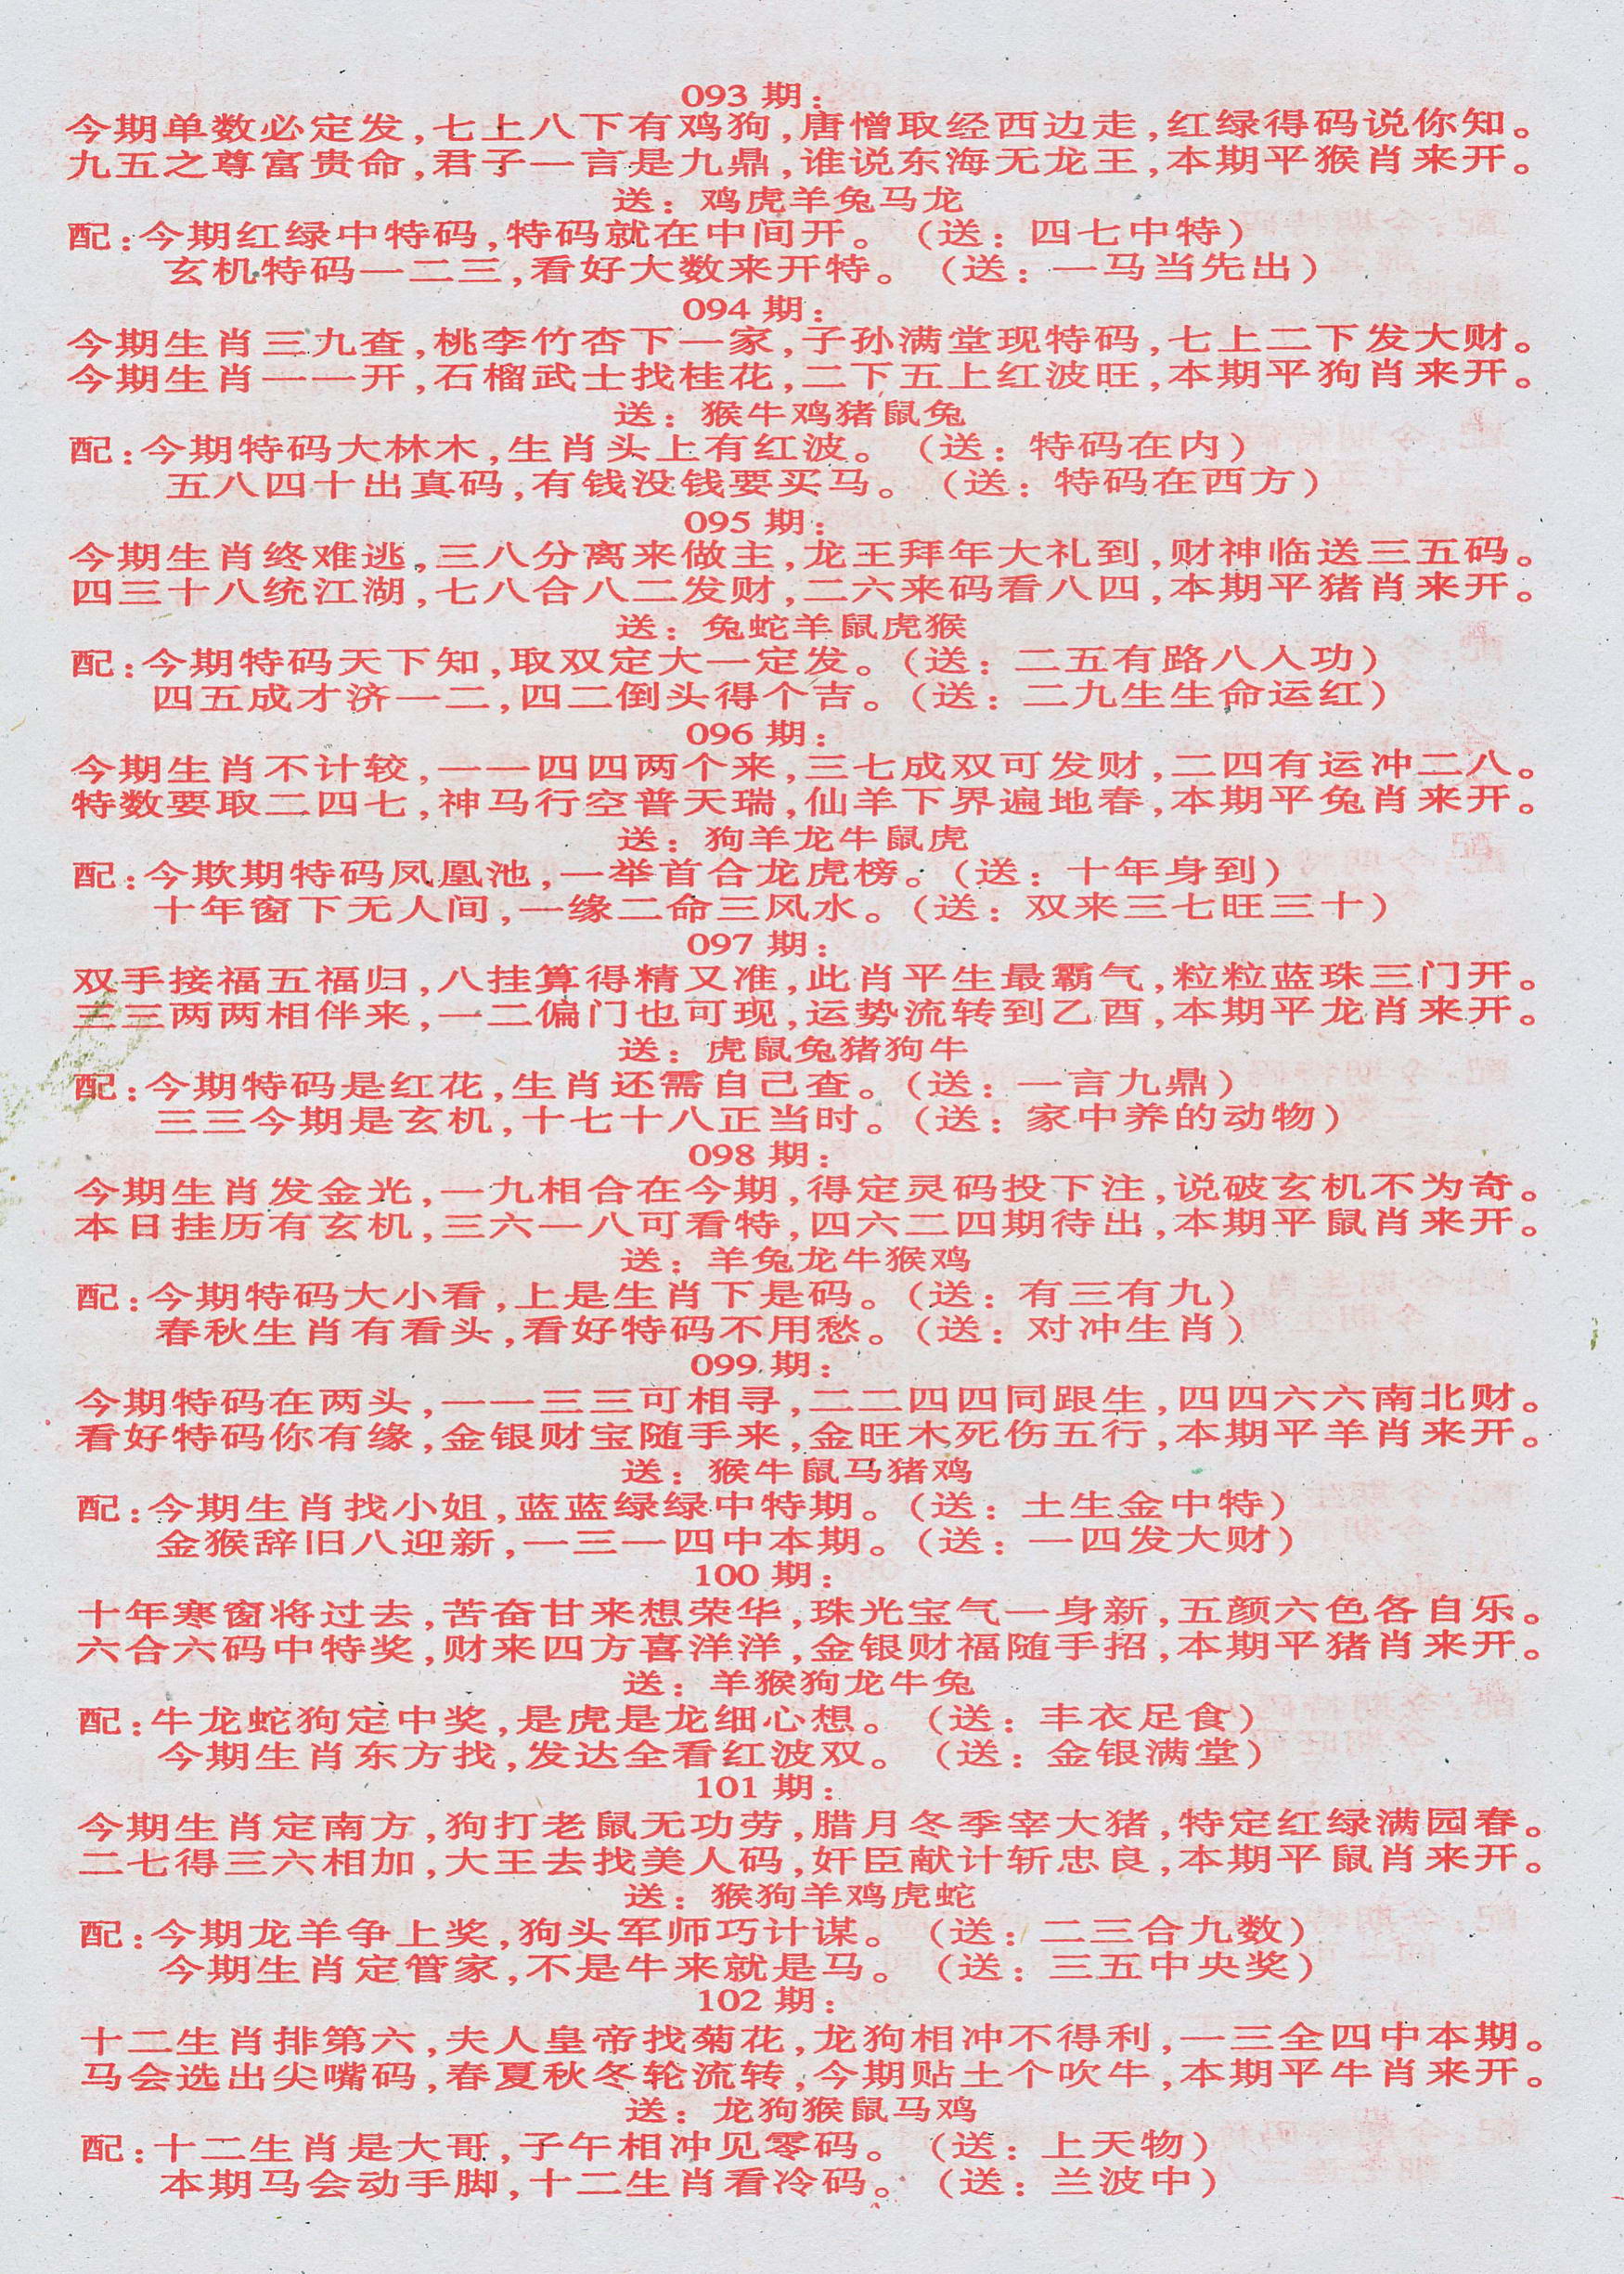 093 期：
今期单数必定发,七上八下有鸡狗,唐憎取经西边走,红绿得码说你知。
九五之尊富贵命,君子一言是九鼎,谁说东海无龙王,本期平猴肖来开。
送：鸡虎羊兔马龙
配:今期红绿中特码,特码就在中间开。（送：四七中特）
玄机特码一二三,看好大数来开特。（送：一马当先出）
094 期：
今期生肖三九查,桃李竹杏下一家,子孙满堂现特码,七上二下发大财。
今期生肖一一开,石榴武士找桂花,二下五上红波旺,本期平狗肖来开。
送：猴牛鸡猪鼠兔
配:今期特码大林木,生肖头上有红波。（送：特码在内）
五八四十出真码,有钱没钱要买马。（送：特码在西方）
095 期：
今期生肖终难逃,三八分离来做主,龙王拜年大礼到,财神临送三五码。
四三十八统江湖,七八合八二发财,二六来码看八四,本期平猪肖来开。
送：兔蛇羊鼠虎猴
配:今期特码天下知,取双定大一定发。（送：二五有路八人功）
四五成才济一二,四二倒头得个吉。（送：二九生生命运红）
096 期：
今期生肖不计较,一一四四两个来,三七成双可发财,二四有运冲二八。
特数要取二四七,神马行空普天瑞,仙羊下界遍地春,本期平兔肖来开。
送：狗羊龙牛鼠虎
配:今欺期特码凤凰池,一举首合龙虎榜。（送：十年身到）
十年窗下无人间,一缘二命三风水。（送：双来三七旺三十）
097 期：
双手接福五福归,八挂算得精又准,此肖平生最霸气,粒粒蓝珠三门开。
三三两两相伴来,一二偏门也可现,运势流转到乙酉,本期平龙肖来开。
送：虎鼠兔猪狗牛
配:今期特码是红花,生肖还需自己查。（送：一言九鼎）
三三今期是玄机,十七十八正当时。（送：家中养的动物）
098 期：
今期生肖发金光,一九相合在今期,得定灵码投下注,说破玄机不为奇。
本日挂历有玄机,三六一八可看特,四六二四期待出,本期平鼠肖来开。
送：羊兔龙牛猴鸡
配:今期特码大小看,上是生肖下是码。（送：有三有九）
春秋生肖有看头,看好特码不用愁。（送：对冲生肖）
099 期：
今期特码在两头,一一三三可相寻,二二四四同跟生,四四六六南北财。
看好特码你有缘,金银财宝随手来,金旺木死伤五行,本期平羊肖来开。
送：猴牛鼠马猪鸡
配:今期生肖找小姐,蓝蓝绿绿中特期。（送：土生金中特）
金猴辞旧八迎新,一三一四中本期。（送：一四发大财）
100 期：
十年寒窗将过去,苦奋甘来想荣华,珠光宝气一身新,五颜六色各自乐。
六合六码中特奖,财来四方喜洋洋,金银财福随手招,本期平猪肖来开。
送：羊猴狗龙牛兔
配:牛龙蛇狗定中奖,是虎是龙细心想。（送：丰衣足食）
今期生肖东方找,发达全看红波双。（送：金银满堂）
101 期：
今期生肖定南方,狗打老鼠无功劳,腊月冬季宰大猪,特定红绿满园春。
二七得三六相加,大王去找美人码,奸臣献计斩忠良,本期平鼠肖来开。
送：猴狗羊鸡虎蛇
配:今期龙羊争上奖,狗头军师巧计谋。（送：二三合九数）
今期生肖定管家,不是牛来就是马。（送：三五中央奖）
102 期：
十二生肖排第六,夫人皇帝找菊花,龙狗相冲不得利,一三全四中本期。
马会选出尖嘴码,春夏秋冬轮流转,今期贴土个吹牛,本期平牛肖来开。
送：龙狗猴鼠马鸡
配:十二生肖是大哥,子午相冲见零码。（送：上天物）
本期马会动手脚,十二生肖看冷码。（送：兰波中）